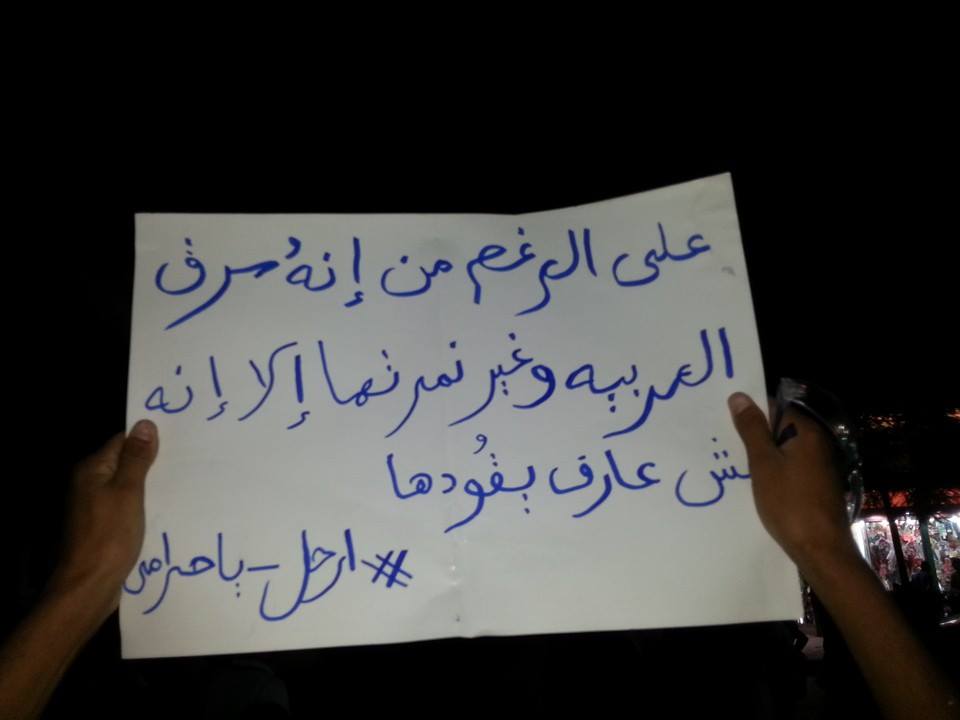 على الرغم من إنهُ سرق
العربيه وغير نمرتها إلا إنه
مش عارف يقُودها
#ارحل_ياحرامى